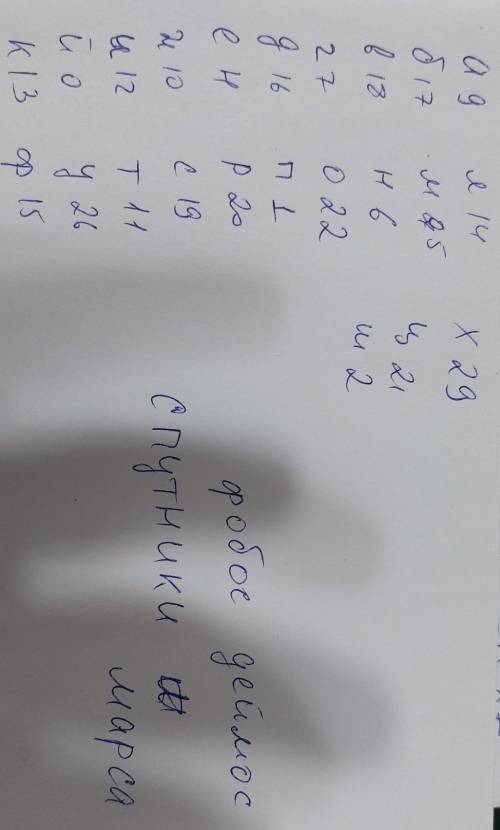 а 9 л 14 х 29
б 17 м 5 ц 21
в 18 н 6 ш 2
г 7 о 22
д 16 п 1
е 4 р 20
з 10 с 19
и 12 т 11
й 0 у 26
к 13 ф 15
фобос деймос
спутники
марса